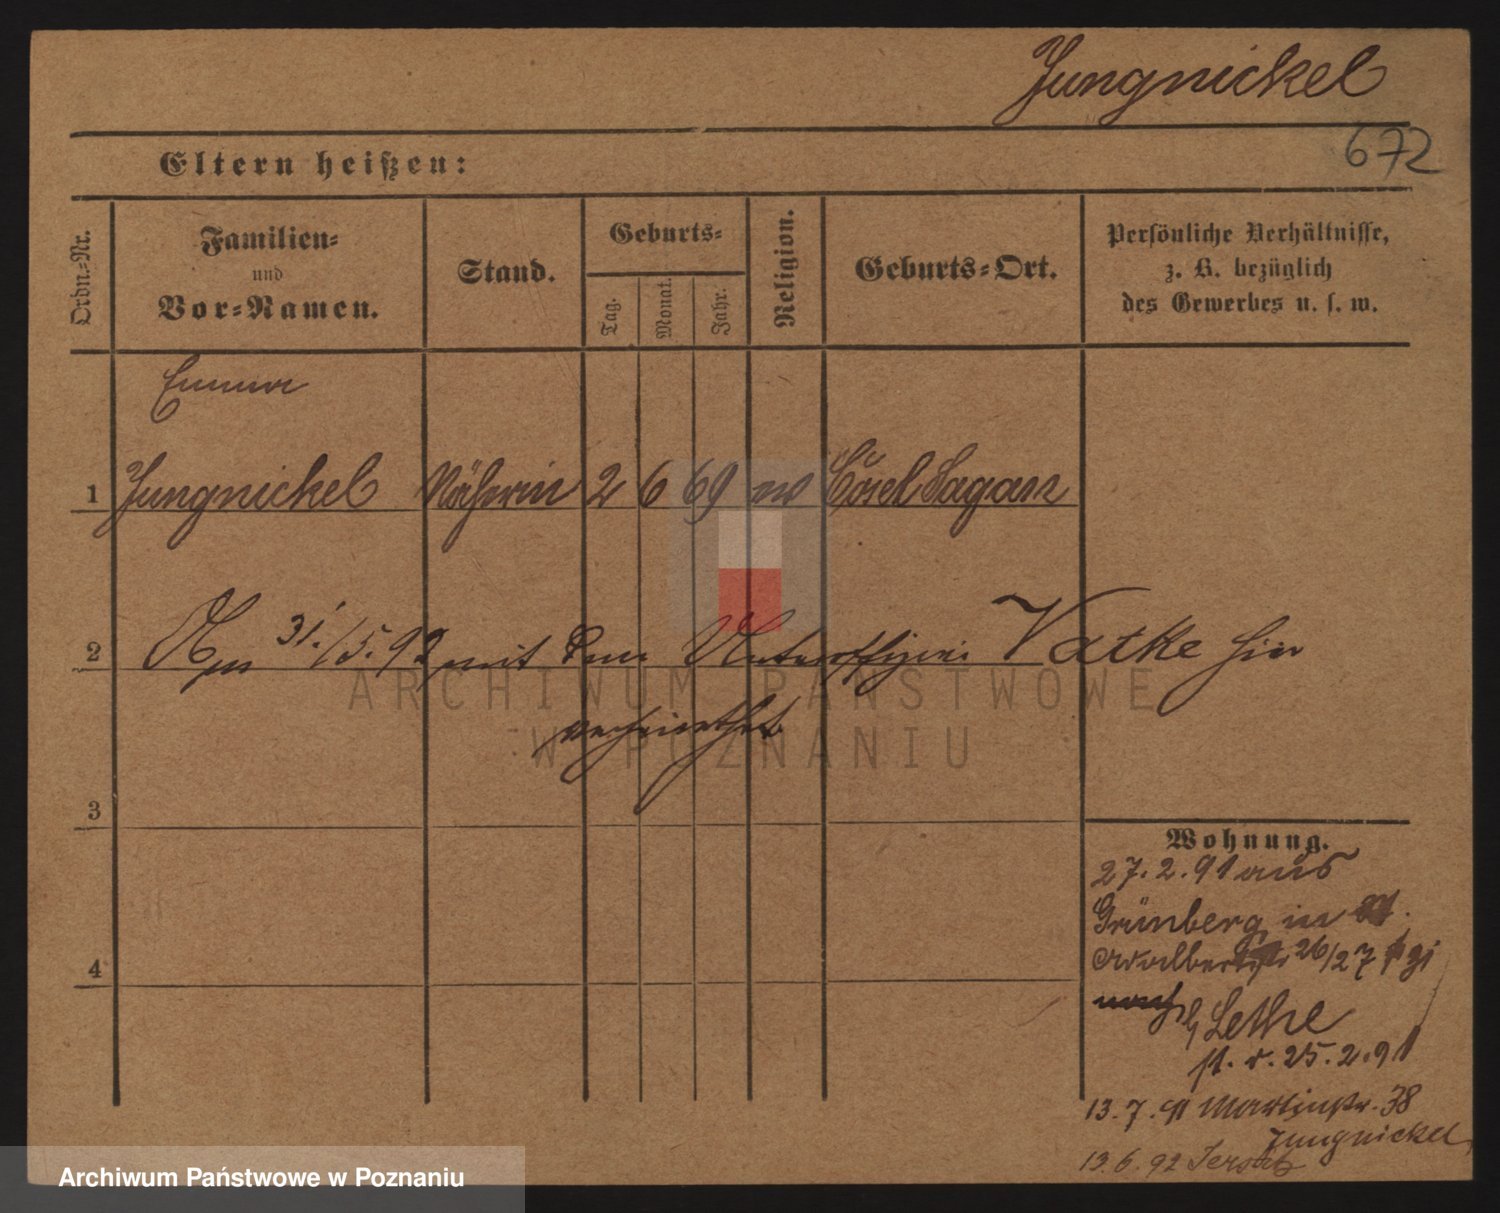 Jungnickel
672
Eltern heißen:
Ordn.-Nr.
Familien-
und
Vor-Namen.
Stand.
Geburts-
Tag.
Monat.
Jahr.
Religion.
Geburts-Ort.
Persönliche Verhältnisse,
z. B. bezüglich
des Gewerbes u. s. w.
Emma
1 Jungnickel Näherin 2 6 69 ev Cosel Sagan
2 Am 31./5. 92 mit dem Unteroffizier Vatke hier
verheirathet
ARCHIWUM PAŃSTWOWE
W POZNANIU
3
4
Wohnung.
27.2.91 aus
Grünberg in
26/27
Lethe
25.2.91
13.7.91 Martinstr. 38
Jungnickel
13.6.92 Jersitz
Archiwum Państwowe w Poznaniu